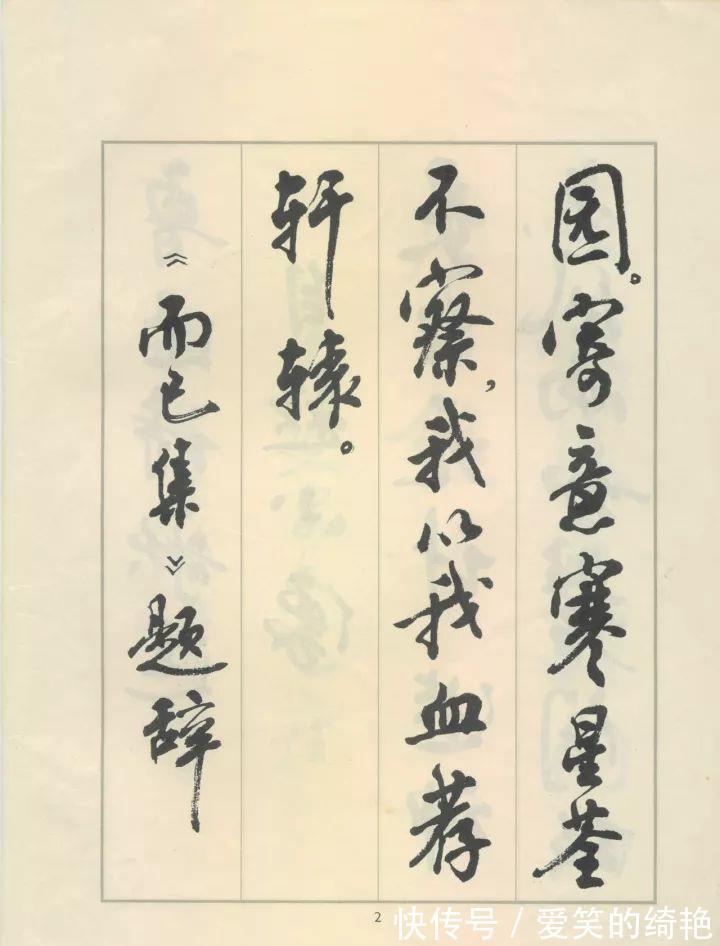 园。寄意寒星荃
不察，我以我血荐
轩辕。
《而已集》题辞
2
快传号 / 爱笑的绮艳